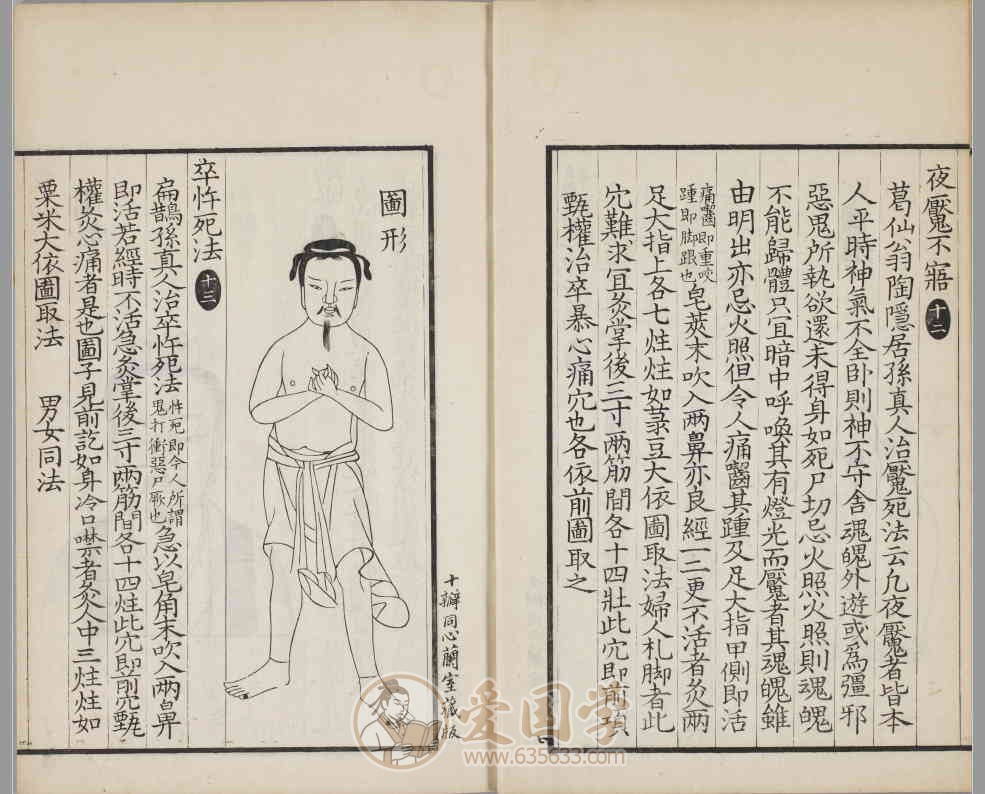 夜魘不寤 十二
葛仙翁陶隱居孫真人治魘死法云凡夜魘者皆本
人平時神氣不全卧則神不守舍魂魄外遊或為彊邪
惡鬼所執欲還未得身如死尸切忌火照火照則魂魄
不能歸體只宜暗中呼喚其有燈光而魘者其魂魄雖
由明出亦忌火照但令人痛嚙其踵及足大指甲側即活
痛嚙即重咬
踵即脚跟也
皂莢末吹入两鼻亦良經一二更不活者灸兩
足大指上各七炷炷如菉豆大依圖取法婦人札脚者此
穴難求宜灸掌後三寸兩筋間各十四壯此穴即前項
甄權治卒暴心痛穴也各依前圖取之
圖形
十瓣同心蘭室藏版
卒忤死法 十三
扁鵲孫真人治卒忤死法
忤死即今人所謂
鬼打衝惡尸厥也
急以皂角末吹入两鼻
即活若經時不活急灸掌後三寸兩筋間各十四炷此穴即前穴甄
權灸心痛者是也圖子見前訖如身冷口噤者灸人中三炷炷如
粟米大依圖取法 男女同法
爱国学
www.635633.com